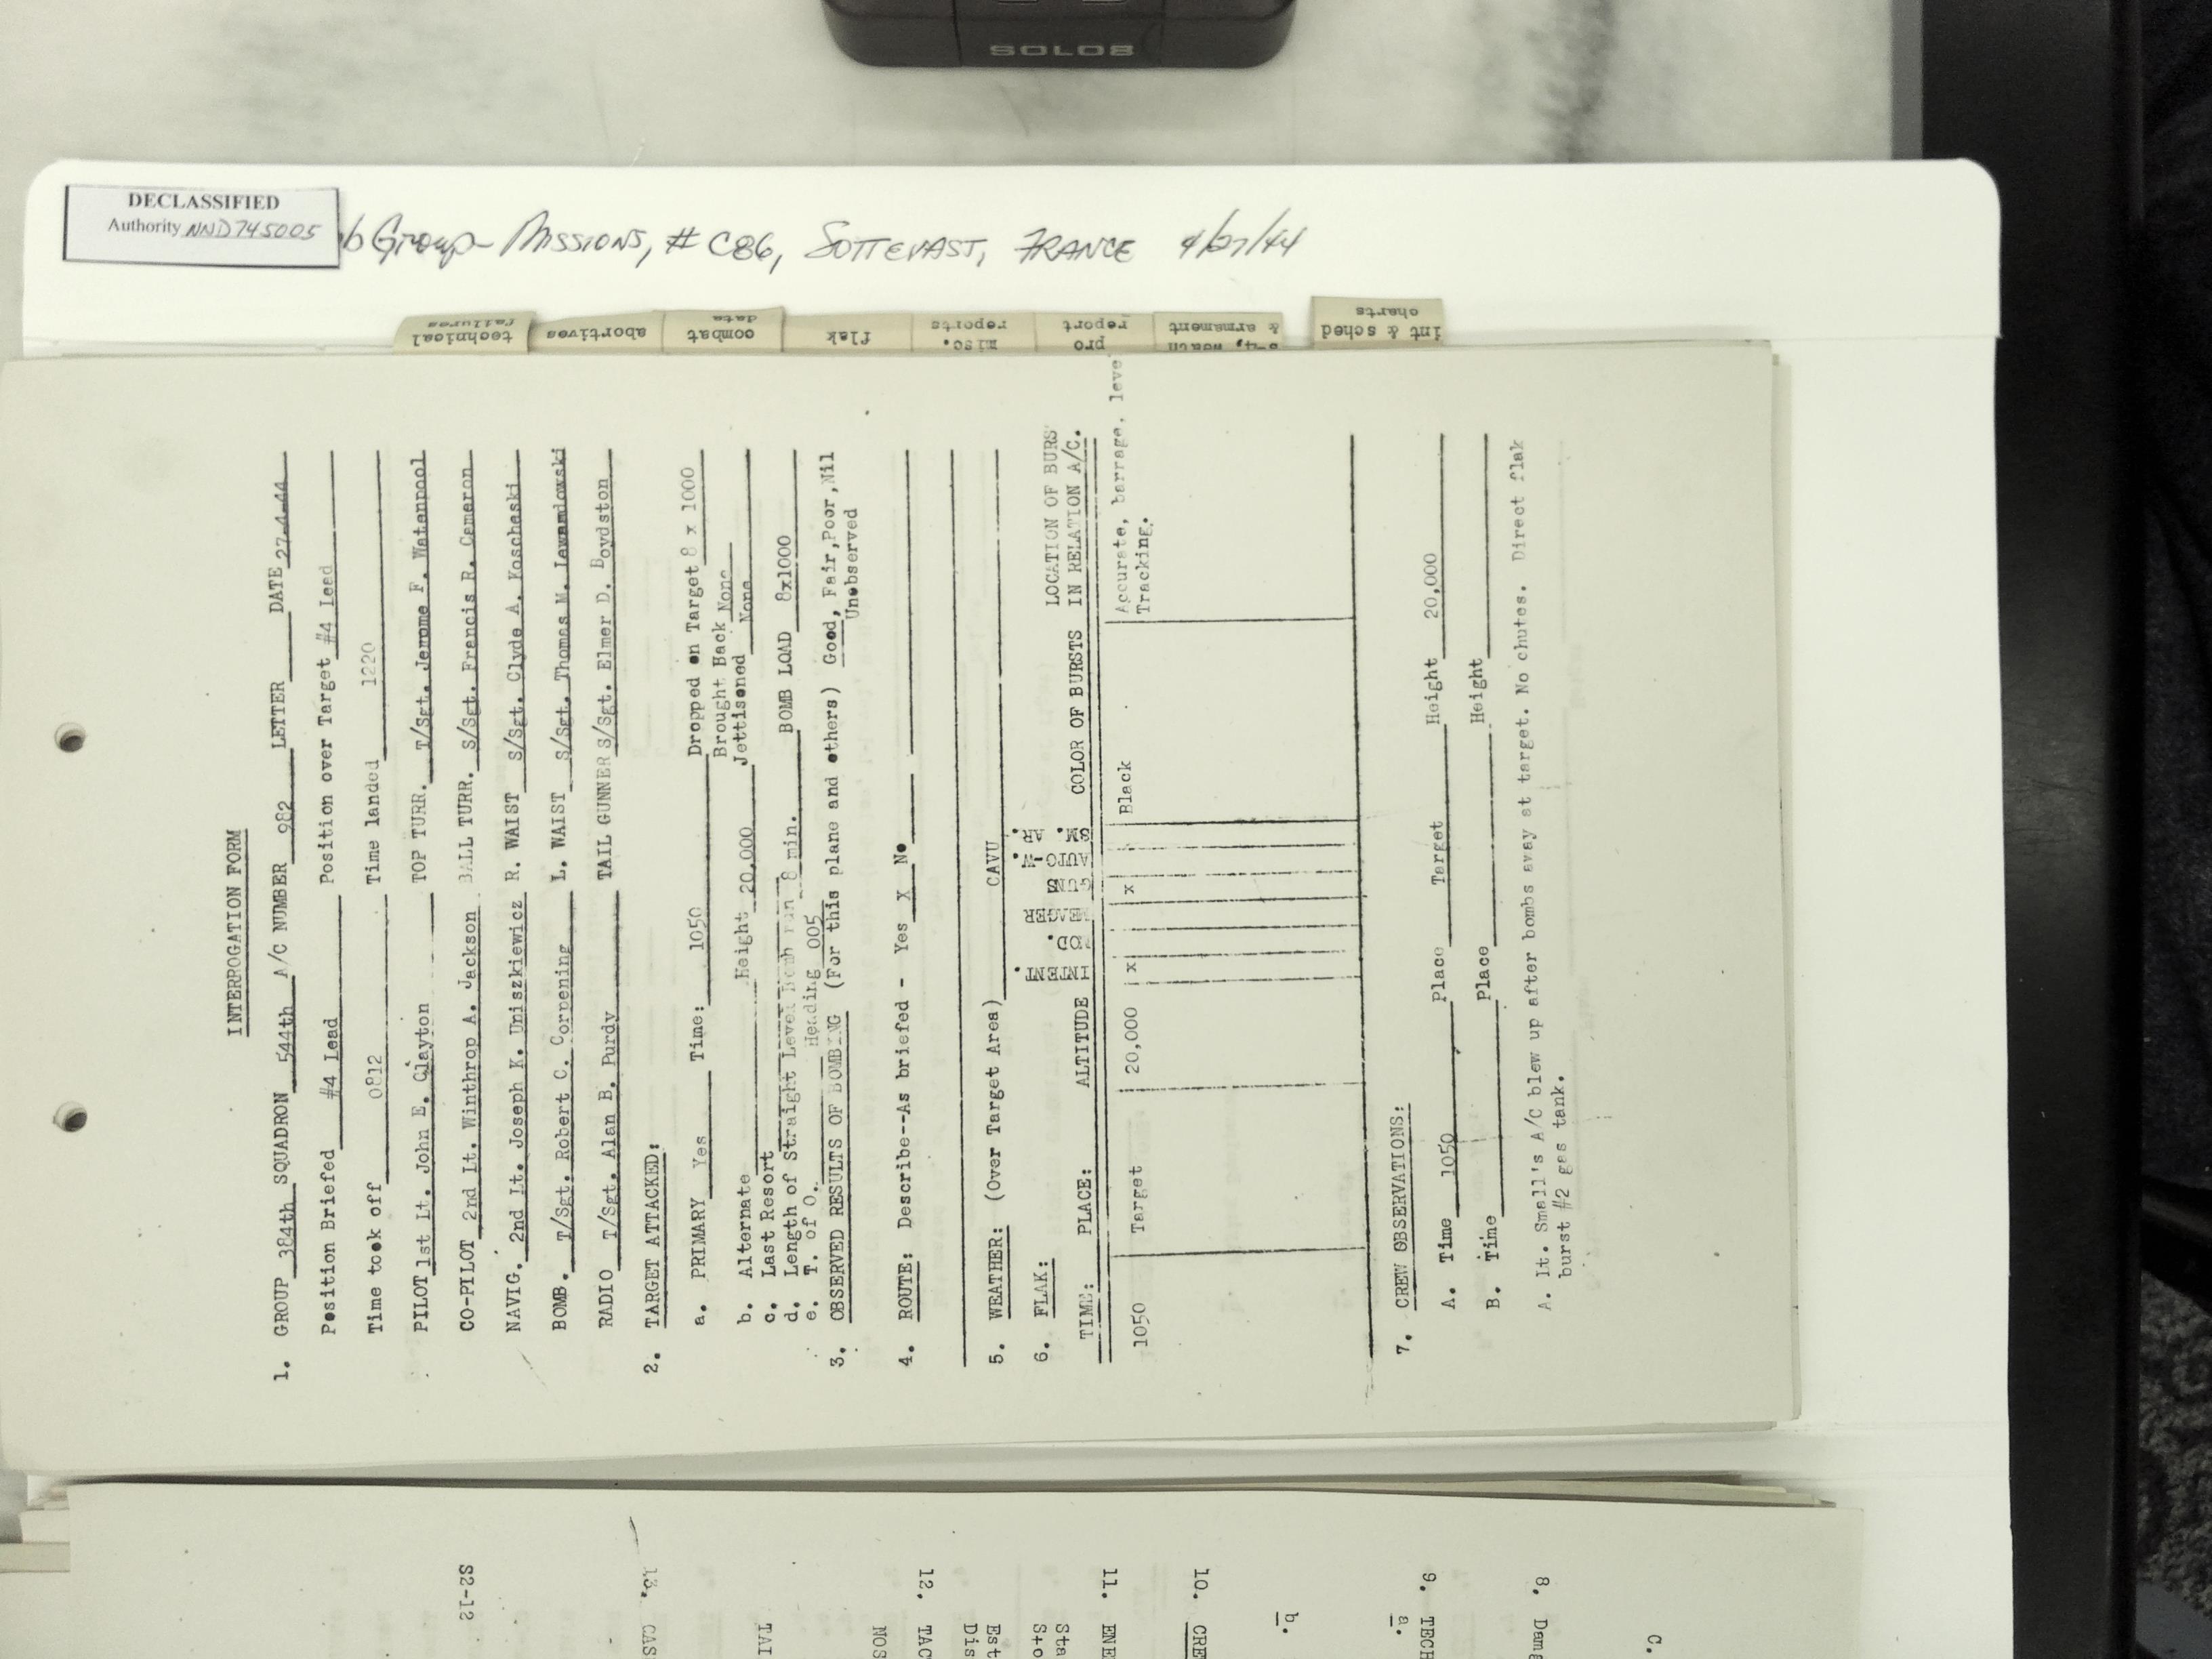 SOLO8
DECLASSIFIED
Authority NND745005
b Group- Missions, # C86, SOTTEVAST, FRANCE 4/27/44
technical
failures
abortives
combat
data
flak
misc.
reports
pro
report
& armament
int & sched
charts
INTERROGATION FORM
1. GROUP 384th SQUADRON 544th A/C NUMBER 982 LETTER DATE 27-4-44
Position Briefed #4 Lead Position over Target #4 Lead
Time took off 0812 Time landed 1220
PILOT 1st Lt. John E. Clayton TOP TURR. T/Sgt. Jerome F. Watenpool
CO-PILOT 2nd Lt. Winthrop A. Jackson BALL TURR. S/Sgt. Francis R. Cameron
NAVIG. 2nd Lt. Joseph K. Uniszkiewicz R. WAIST S/Sgt. Clyde A. Koscheski
BOMB. T/Sgt. Robert C. Corpening L. WAIST S/Sgt. Thomas M. Lewandowski
RADIO T/Sgt. Alan B. Purdy TAIL GUNNER S/Sgt. Elmer D. Boydston
2. TARGET ATTACKED:
a. PRIMARY Yes Time: 1050 Dropped on Target 8 x 1000
Brought Back None
b. Alternate Height 20,000 Jettisoned None
c. Last Resort
d. Length of Straight Level Bomb run 8 min. BOMB LOAD 8x1000
e. T. of O. Heading 005
3. OBSERVED RESULTS OF BOMBING (For this plane and others) Good, Fair, Poor, Nil
Unobserved
4. ROUTE: Describe--As briefed - Yes X No
5. WEATHER: (Over Target Area) CAVU
6. FLAK: LOCATION OF BURS
TIME: PLACE: ALTITUDE INTENT. MOD. MEAGER GUNS AUTO-W. SM. AR. COLOR OF BURSTS IN RELATION A/C.
1050 Target 20,000 x x Black Accurate, barrage, leve
Tracking.
7. CREW OBSERVATIONS:
A. Time 1050 Place Target Height 20,000
B. Time Place Height
A. Lt. Small's A/C blew up after bombs away at target. No chutes. Direct flak
burst #2 gas tank.
S2-12
13. CAS
TAI
NOS
12. TAC
Dis
Est
Sto
Sta
11. ENE
10. CRE
b.
9. TECH
a.
8. Dama
C.